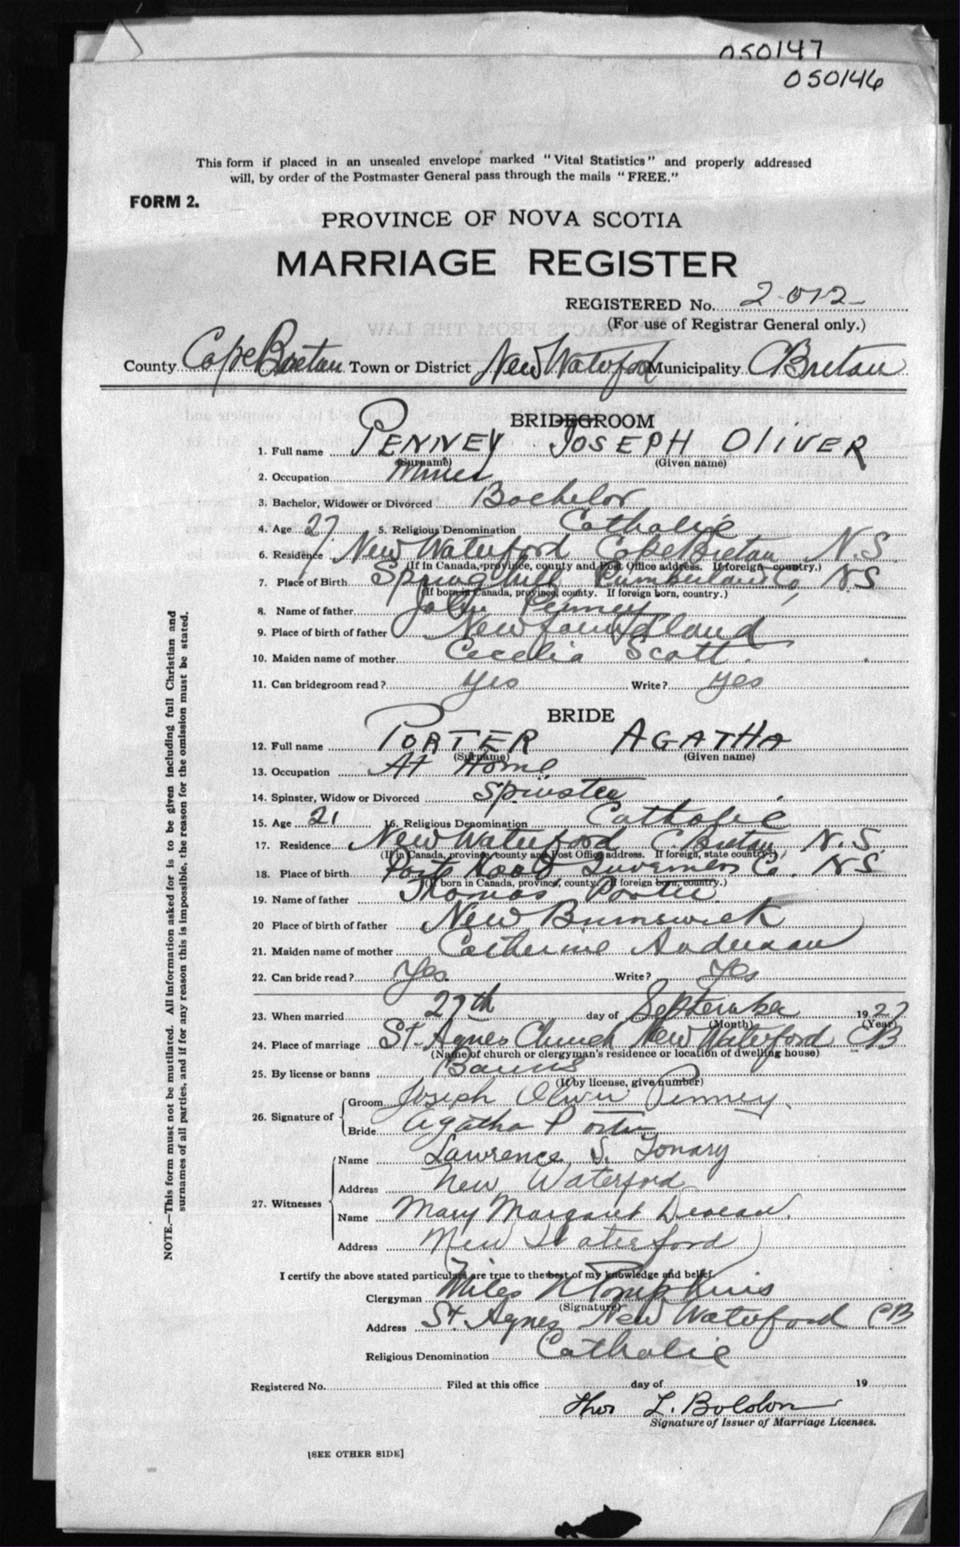 050147
050146
This form if placed in an unsealed envelope marked "Vital Statistics" and properly addressed
will, by order of the Postmaster General pass through the mails "FREE."
FORM 2.
PROVINCE OF NOVA SCOTIA
MARRIAGE REGISTER
REGISTERED No. 2012
(For use of Registrar General only.)
County Cape Breton Town or District New Waterford Municipality C Breton
BRIDEGROOM
1. Full name PENNEY JOSEPH OLIVER
(Surname) (Given name)
2. Occupation Miner
3. Bachelor, Widower or Divorced Bachelor
4. Age 27 5. Religious Denomination Catholic
6. Residence New Waterford Cape Breton N.S
(If in Canada, province, county and Post Office address. If foreign country.)
7. Place of Birth Springhill Cumberland Co, NS
(If born in Canada, province, county. If foreign born, country.)
8. Name of father John Penney
9. Place of birth of father Newfoundland
10. Maiden name of mother Cecelia Scott.
11. Can bridegroom read? yes Write? yes
BRIDE
12. Full name PORTER AGATHA
(Surname) (Given name)
13. Occupation At Home
14. Spinster, Widow or Divorced Spinster
15. Age 21 16. Religious Denomination Catholic
17. Residence New Waterford C. Breton N.S.
(If in Canada, province, county and Post Office address. If foreign, state country.)
18. Place of birth Port Hood Inverness Co. NS
(If born in Canada, province, county. If foreign born, country.)
19. Name of father Thomas Porter
20 Place of birth of father New Brunswick
21. Maiden name of mother Catherine Anderson
22. Can bride read? Yes Write? Yes
23. When married 27th day of September 1927
(Month) (Year)
24. Place of marriage St. Agnes Church New Waterford CB
(Name of church or clergyman's residence or location of dwelling house)
25. By license or banns Banns
(If by license, give number)
26. Signature of Groom Joseph Oliver Penney.
Bride Agatha Porter
27. Witnesses Name Lawrence S. Tonary
Address New Waterford
Name Mary Margaret
Address New Waterford
I certify the above stated particulars are true to the best of my knowledge and belief.
Clergyman Miles N Tompkins
(Signature)
Address St. Agnes New Waterford CB
Religious Denomination Catholic
Registered No. Filed at this office day of 19
Thos L. Boldon
Signature of Issuer of Marriage Licenses.
[SEE OTHER SIDE]
NOTE.—This form must not be mutilated. All information asked for is to be given including full Christian and
surnames of all parties, and if for any reason this is impossible, the reason for the omission must be stated.